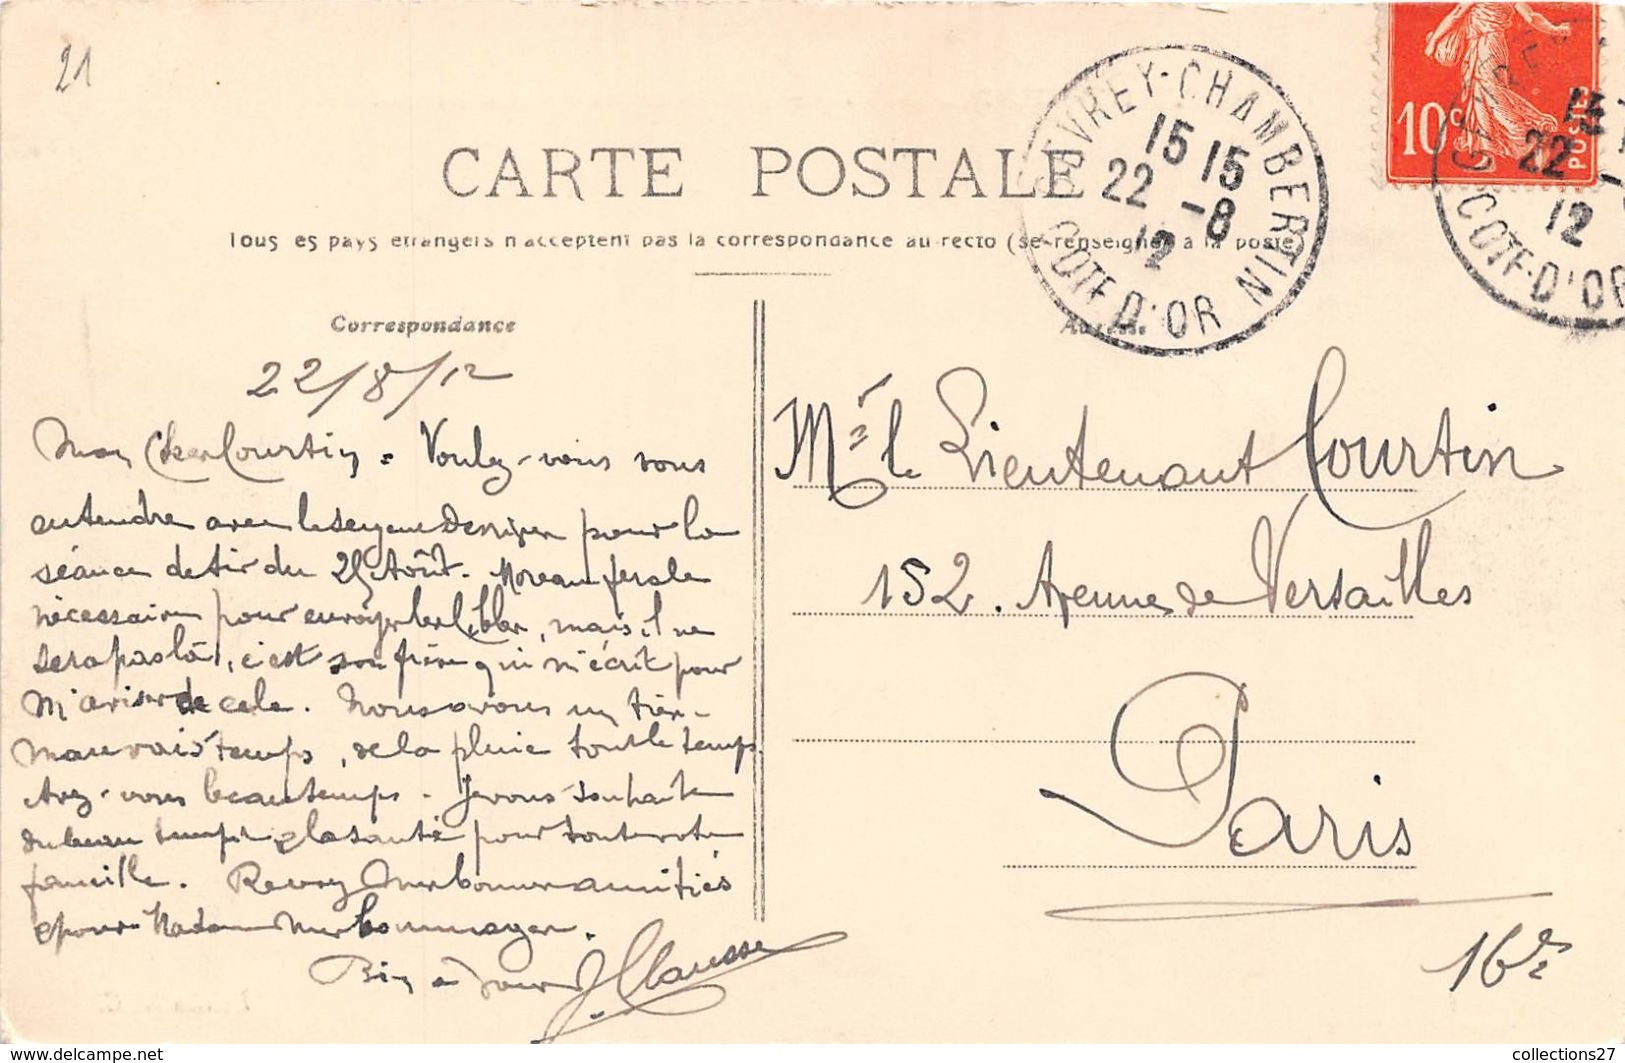 21
CARTE POSTALE
Tous les pays étrangers n'acceptent pas la correspondance au recto (se renseigner à la poste)
GEVREY-CHAMBERTIN
15 15
22 -8
12
COTE-D'OR
10c
POSTES
15
22
12
COTE-D'OR
Correspondance
Adresse
22/8/12
Mon Cher Courtin = Voulez-vous vous
entendre avec le Sergent pour la
séance de tir du 25 Août. Moreau fera le
nécessaire pour envoyer les cibles, mais il ne
sera pas là, c'est son frère qui m'écrit pour
m'aviser de cela. Nous avons un très
mauvais temps, de la pluie tout le temps.
Avez-vous beau temps. Je vous souhaite
du beau temps et la santé pour toute votre
famille. Recevez mes bonnes amitiés
et pour Madame mes hommages.
Bien à vous J. Clausse
Mr le Lieutenant Courtin
152. Avenue de Versailles
Paris
16e
www.delcampe.net
collections27